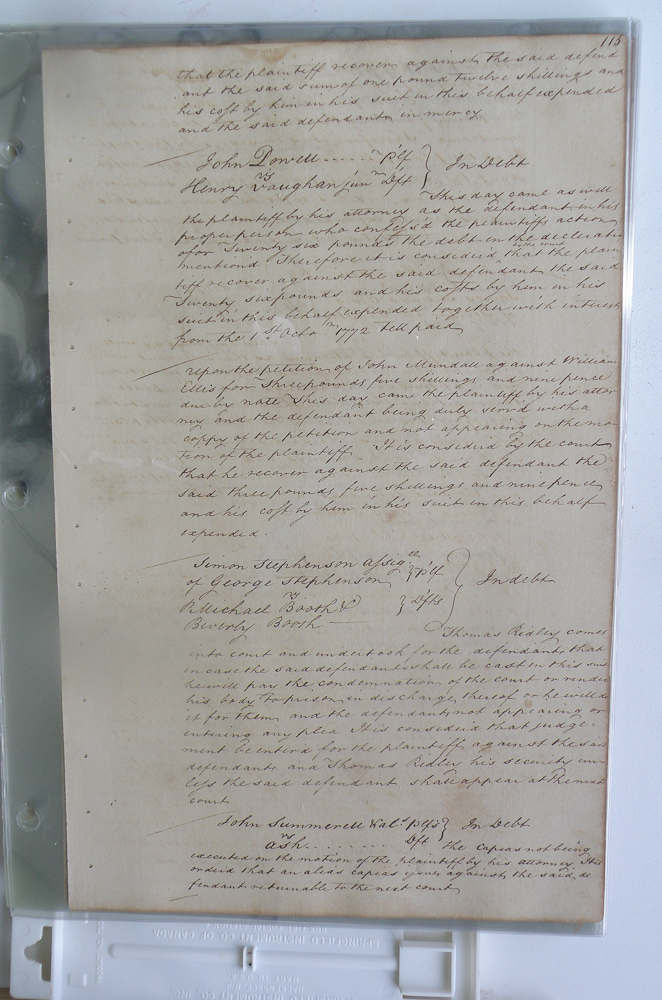 115
that the plaintiff recover against the said defend
ant the said sum of one pound twelve shillings and
his cost by him in his suit in this behalf expended
and the said defendant in mercy
John Powell ...... Plf } In Debt
vs
Henry Vaughan junr Dft
This day came as well
the plaintiff by his attorney as the defendant in his
proper person who confess'd the plaintiffs action
for Twenty six pounds the debt in the declaration
mentiond Therefore it is considerd by the court that the plain
tiff recover against the said defendant the said
Twenty six pounds and his costs by him in his
suit in this behalf expended together with interest
from the 1st Octo 1772 till paid
Upon the petition of John Mundall against William
Ellis for Three pounds five shillings and nine pence
due by note This day came the plaintiff by his attor
ney and the defendant being duly serv'd with a
coppy of the petition and not appearing on the mo
tion of the plaintiff It is considerd by the court
that he recover against the said defendant the
said three pounds five shillings and nine pence
and his cost by him in his suit in this behalf
expended.
Simon Stephenson assignee
of George Stephenson } Plf } In debt
vs
Michael Booth &
Beverly Booth } Dfts
Thomas Ridley comes
into court and undertook for the defendants that
in case the said defendants shall be cast in this suit
he will pay the condemnation of the court or render
his body to prison in discharge thereof or he will do
it for them and the defendants not appearing or
entering any plea It is considerd that judge-
ment be enterd for the plaintiff against the said
defendants and Thomas Ridley his security un-
less the said defendant shall appear at the next
court
John Summerell & als Plfs } In Debt
vs
Ash ........ Dft
the capias not being
executed on the motion of the plaintiff by his attorney It is
orderd that an alias capias issue against the said de
fendant returnable to the next court
SPRINGFIELD INSTRUMENT CO. OF CANADA
MADE IN U.S.A.